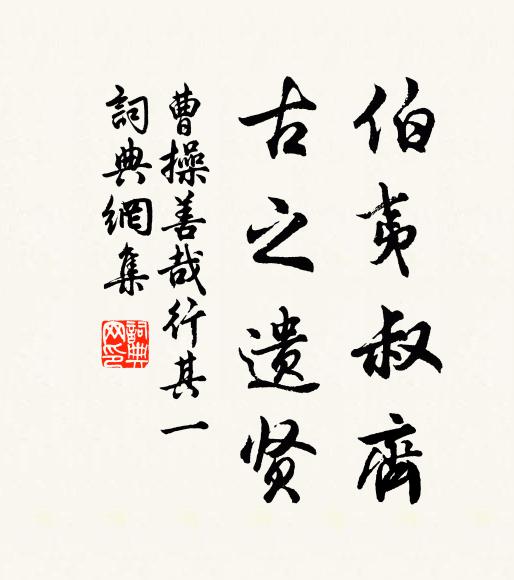 伯夷叔齊
古之遗贤
曹操善哉行其一
詞典網集
詞典网印